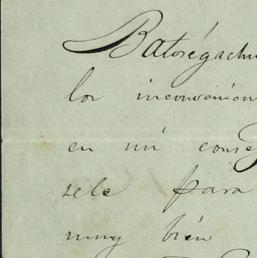 Batorégachi
los inconvenien
en mi conse
sele para
muy bien